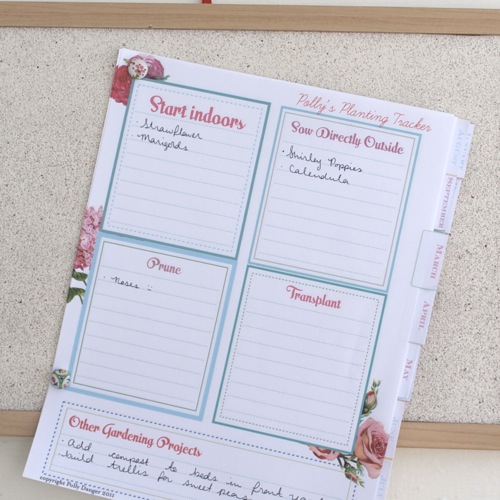 Polly's Planting Tracker
Start indoors
· Strawflower
· Marigolds
Sow Directly Outside
· Shirley Poppies
· Calendula
Prune
· Roses :)
Transplant
Other Gardening Projects
· Add compost to beds in front
· build trellis for sweet peas
copyright Polly Danger 2011
SEPTEMBER
MARCH
APRIL
MAY